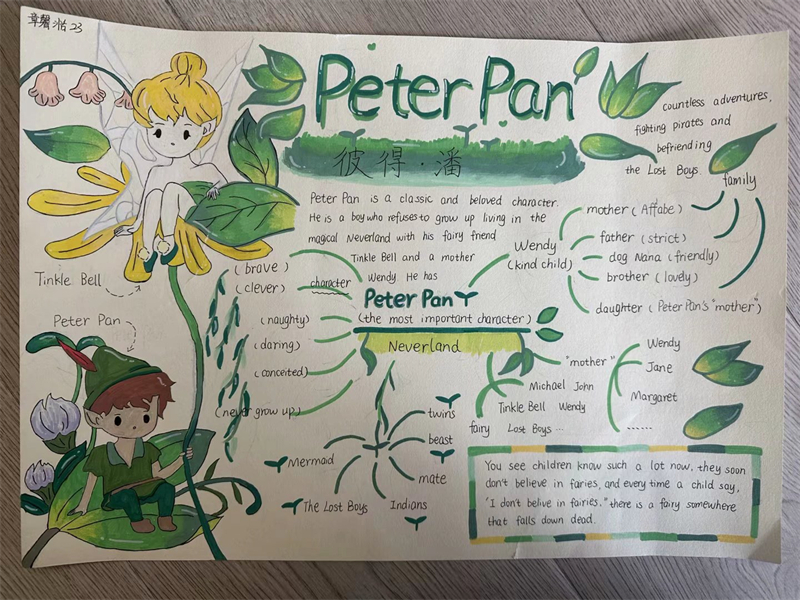 23
Peter Pan
彼得·潘
countless adventures,
fighting pirates and
befriending
the Lost Boys.
family
Peter Pan is a classic and beloved character.
He is a boy who refuses to grow up living in the
magical Neverland with his fairy friend
Tinkle Bell and a mother
Wendy. He has
Wendy
(kind child)
mother (Affabe)
father (strict)
dog Nana (friendly)
brother (lovely)
daughter (Peter Pan's "mother")
Tinkle Bell
Peter Pan
character
(brave)
(clever)
(naughty)
(daring)
(conceited)
(never grow up)
Peter Pan
(the most important character)
Neverland
"mother"
Wendy
Jane
Margaret
......
Michael John
Tinkle Bell Wendy
fairy Lost Boys ...
twins
beast
mate
Indians
The Lost Boys
Mermaid
You see children know such a lot now, they soon
don't believe in faries, and every time a child say,
'I don't belive in fairies." there is a fairy somewhere
that falls down dead.